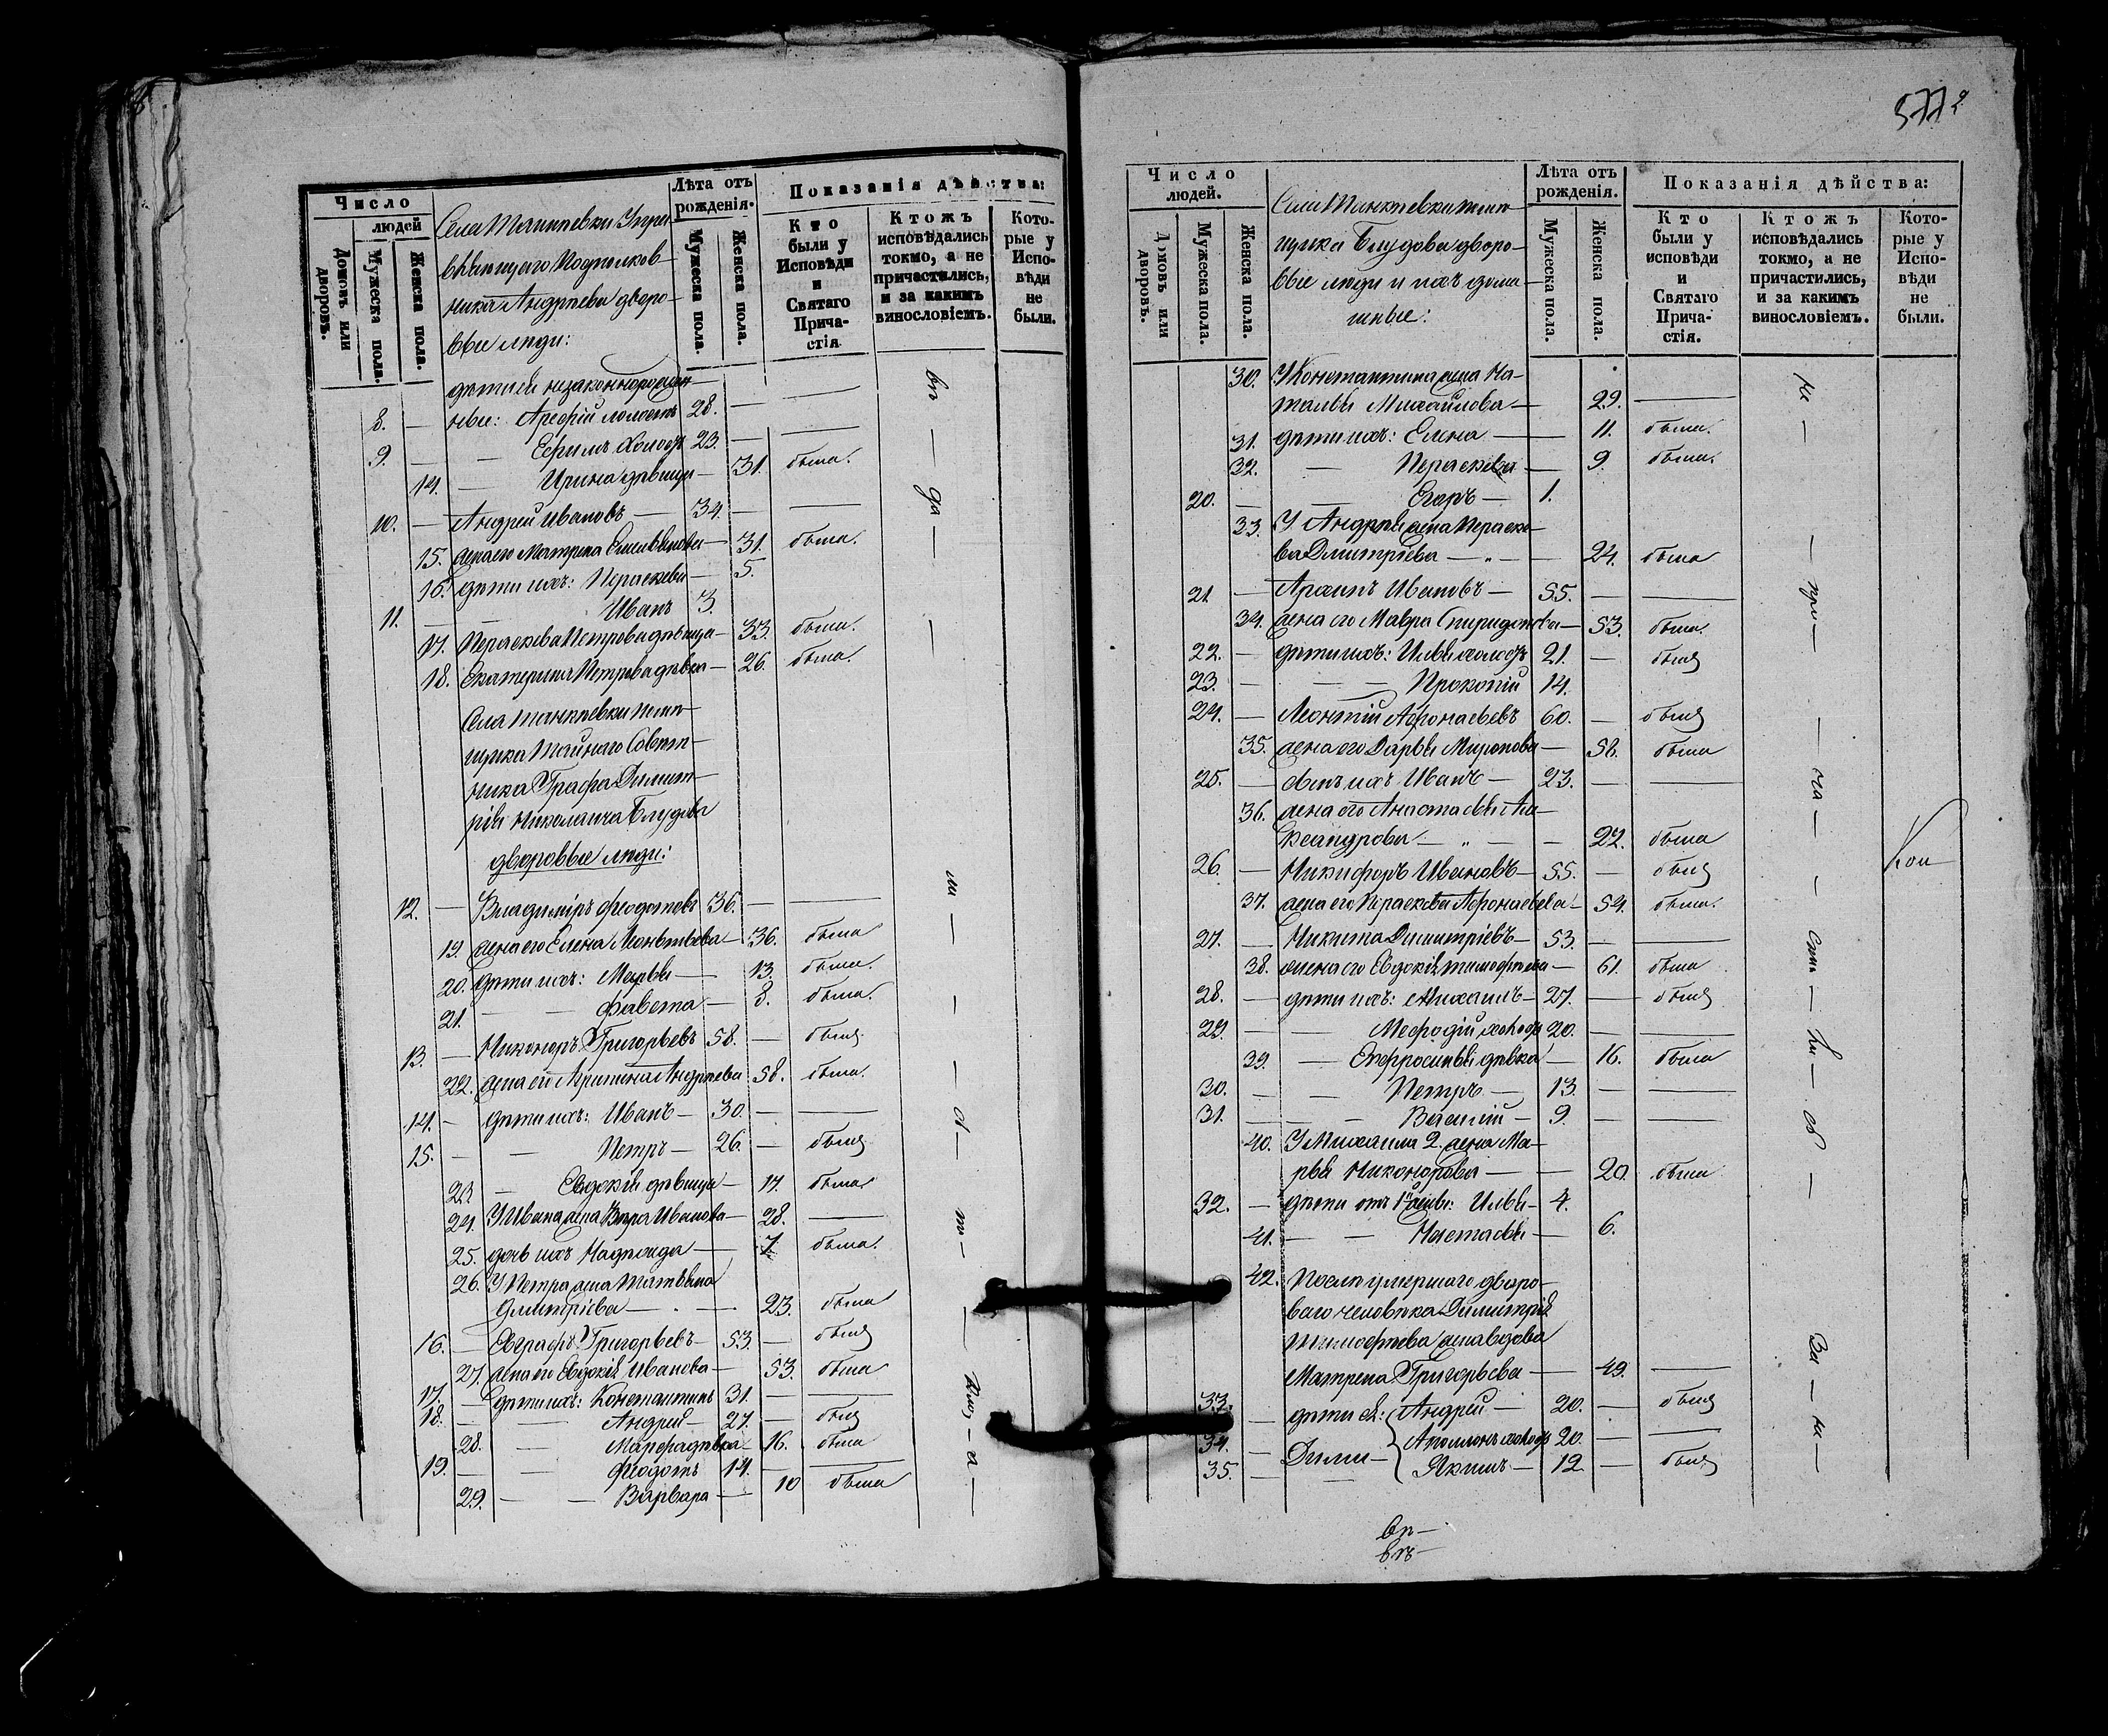 Число
людей
Домовъ или дворовъ.
Мужеска пола.
Женска пола.
Села Танѣевки Упра
вляющаго Подполков-
ника Андрѣева дворо-
вые люди:
Лѣта отъ рожденія.
Мужеска пола.
Женска пола.
Показанія дѣйства:
Кто были у Исповѣди и Святаго Причастія
Ктожъ исповѣдались токмо, а не причастились, и за какимъ винословіемъ.
Которые у Исповѣди не были.
дѣти ея незаконнорожден-
8. — ные: Арефій холостъ 28. —
9. — — Ефимъ холостъ 23. —
14. — Ирина дѣвица — 31. была.
10. — Андрей Ивановъ — 34. —
15. жена его Матрена Емельянова — 31. была.
16. дѣти ихъ: Параскева — 5.
11. — — Иванъ 3.
17. Параскева Петрова дѣвица — 33. была.
18. Екатерина Петрова дѣвка — 26. была.
Села Танѣевки помѣ-
щика Тайнаго Совѣт-
ника Графа Димит-
рія Николаича Блудова
дворовые люди:
12. — Владиміръ Феодотовъ 36. —
19. жена его Елена Леонтьева — 36. была
20. дѣти ихъ: Марья — 13. была.
21. — — Фавста — 8. была.
13. — Никоноръ Григорьевъ 58. — былъ
22. жена его Агрипина Андрѣева 58. была.
14. — дѣти ихъ: Иванъ — 30. —
15. — — Петръ — 26. — былъ
23. — Евдокія дѣвица — 17. была
24. У Ивана жена Вѣра Иванова — 28. —
25. дочь ихъ Надежда — 7. была.
26. У Петра жена Татьяна
Димитріева — 23. была
16. — Евграфъ Григорьевъ — 53. — былъ
27. жена его Евдокія Иванова — 53. была
17. — дѣти ихъ: Константинъ 31. —
18. — Андрей — 27. — былъ
28. — Марфа дѣвка — 16. была
19. — — Феодотъ 14. —
29. — — Варвара — 10 была
577
Число людей.
Домовъ или дворовъ.
Мужеска пола.
Женска пола.
Села Танѣевки помѣ-
щика Блудова дворо-
вые люди и ихъ дома
шные:
Лѣта отъ рожденія.
Мужеска пола.
Женска пола.
Показанія дѣйства:
Кто были у исповѣди и Святаго Причастія.
Ктожъ исповѣдались токмо, а не причастились, и за какимъ винословіемъ.
Которые у Исповѣди не были.
30. У Константина жена На-
талья Михайлова — 29. —
31. дѣти ихъ: Елена — 11. была.
32. — Параскева — 9. была.
20. — Егоръ — 1.
33. У Андрея жена Параске-
ва Димитріева — 24. была
21. — Архипъ Ивановъ — 55. —
34. жена его Мавра Спиридонова — 53. была.
22. — дѣти ихъ: Илья холостъ 21. — былъ
23. — — — Прокопій 14.
24. — Леонтій Афонасьевъ 60. — былъ
35. жена его Дарья Миронова — 58. была
25. — сынъ ихъ Иванъ — 23. —
36. жена его Анастасья Але-
ксандрова — — 22. была
26. — Никифоръ Ивановъ — 55. — былъ
37. жена его Параскева Афонасьева — 54. была.
27. — Никита Димитріевъ — 53. —
38. жена его Евдокія Тимофѣева — 61. была
28. — дѣти ихъ: Михаилъ — 27. — былъ
29. — — Мефодій холост 20. —
39. — Евфросинья дѣвка — 16. была
30. — — Петръ — 13. —
31. — — Василій — 9. —
40. У Михаила 2. жена Ма-
рья Никонорова — — 20. была
32. — дѣти отъ 1й жены: Илья — 4.
41. — — Настасья — 6.
42. Послѣ умершаго дворо-
ваго человѣка Димитрія
Тимофѣева жена вдова
Матрена Григорьева — 49. —
33. — дѣти ея: Андрей — 20. — былъ
34. — Аполлонъ холост 20. —
35. — Якимъ — 12 — былъ